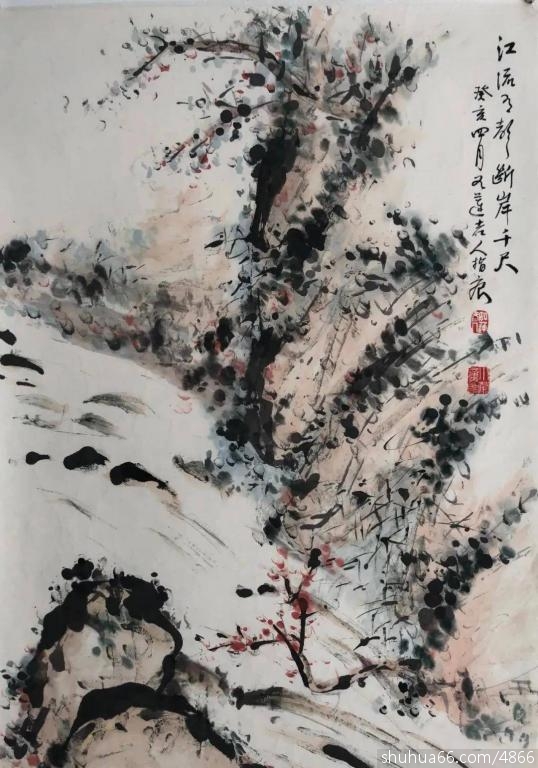 江流有声断岸千尺
癸亥四月九莲老人指痕
shuhua66.com/4866